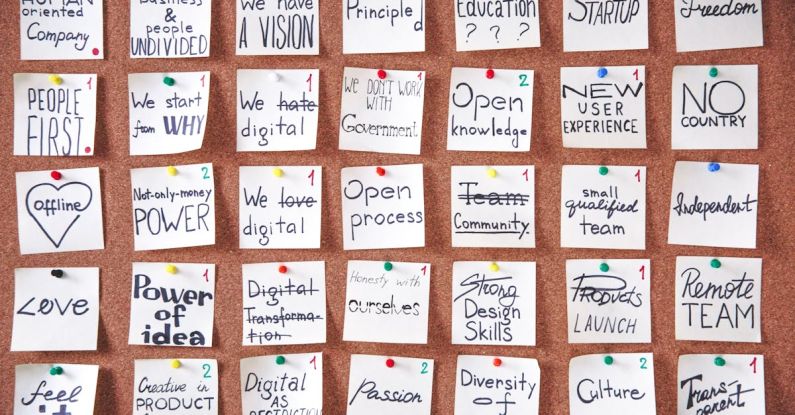 HUMAN
oriented
Company.
Business
&
people
UNDIVIDED
We have
A VISION
Principled
Education
? ? ?
STARTUP
Freedom
1
PEOPLE
FIRST.
1
We start
from WHY
1
We hate
digital
1
We DON'T WORK
WITH
Government
2
Open
knowledge
1
NEW
USER
EXPERIENCE
2
NO
COUNTRY
offline
2
Not-only-money
POWER
1
We love
digital
1
Open
process
1
Team
Community
1
small
qualified
team
Independent
LOVE
1
Power
of
idea
1
Digital
Transforma-
tion
1
Honesty with
ourselves
Strong
Design
Skills
1
Products
LAUNCH
Remote
TEAM
feel
it
2
Creative in
PRODUCT
1
Digital
AS
2
Passion
1
Diversity
of
2
Culture
1
Trans-
parent